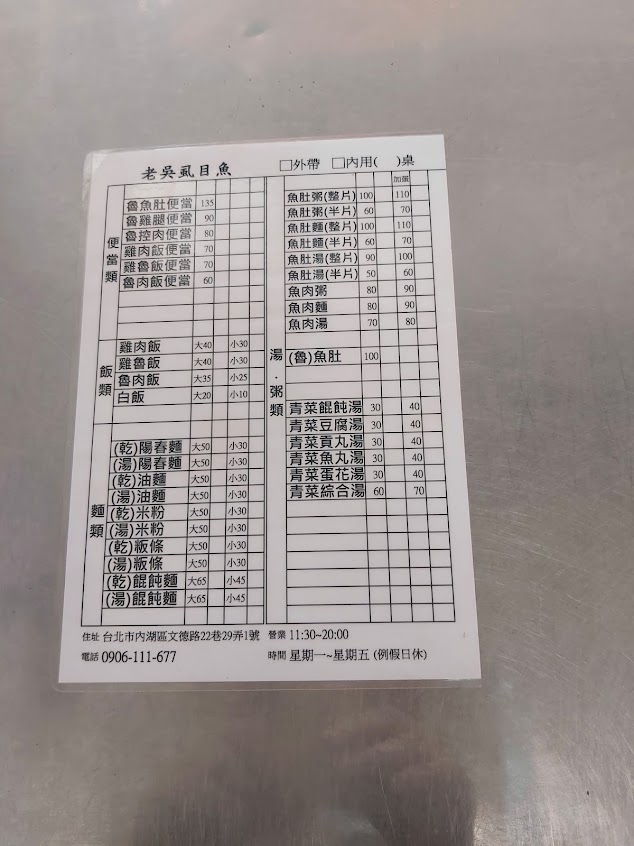 老吳虱目魚
□外帶 □內用( )桌
便當類
魯魚肚便當 135
魯雞腿便當 90
魯控肉便當 80
雞肉飯便當 70
雞魯飯便當 70
魯肉飯便當 60
飯類
雞肉飯 大40 小30
雞魯飯 大40 小30
魯肉飯 大35 小25
白飯 大20 小10
麵類
(乾)陽春麵 大50 小30
(湯)陽春麵 大50 小30
(乾)油麵 大50 小30
(湯)油麵 大50 小30
(乾)米粉 大50 小30
(湯)米粉 大50 小30
(乾)粄條 大50 小30
(湯)粄條 大50 小30
(乾)餛飩麵 大65 小45
(湯)餛飩麵 大65 小45
湯．粥類
加蛋
魚肚粥(整片) 100 110
魚肚粥(半片) 60 70
魚肚麵(整片) 100 110
魚肚麵(半片) 60 70
魚肚湯(整片) 90 100
魚肚湯(半片) 50 60
魚肉粥 80 90
魚肉麵 80 90
魚肉湯 70 80
(魯)魚肚 100
青菜餛飩湯 30 40
青菜豆腐湯 30 40
青菜貢丸湯 30 40
青菜魚丸湯 30 40
青菜蛋花湯 30 40
青菜綜合湯 60 70
住址 台北市內湖區文德路22巷29弄1號 營業 11:30~20:00
電話 0906-111-677 時間 星期一~星期五 (例假日休)